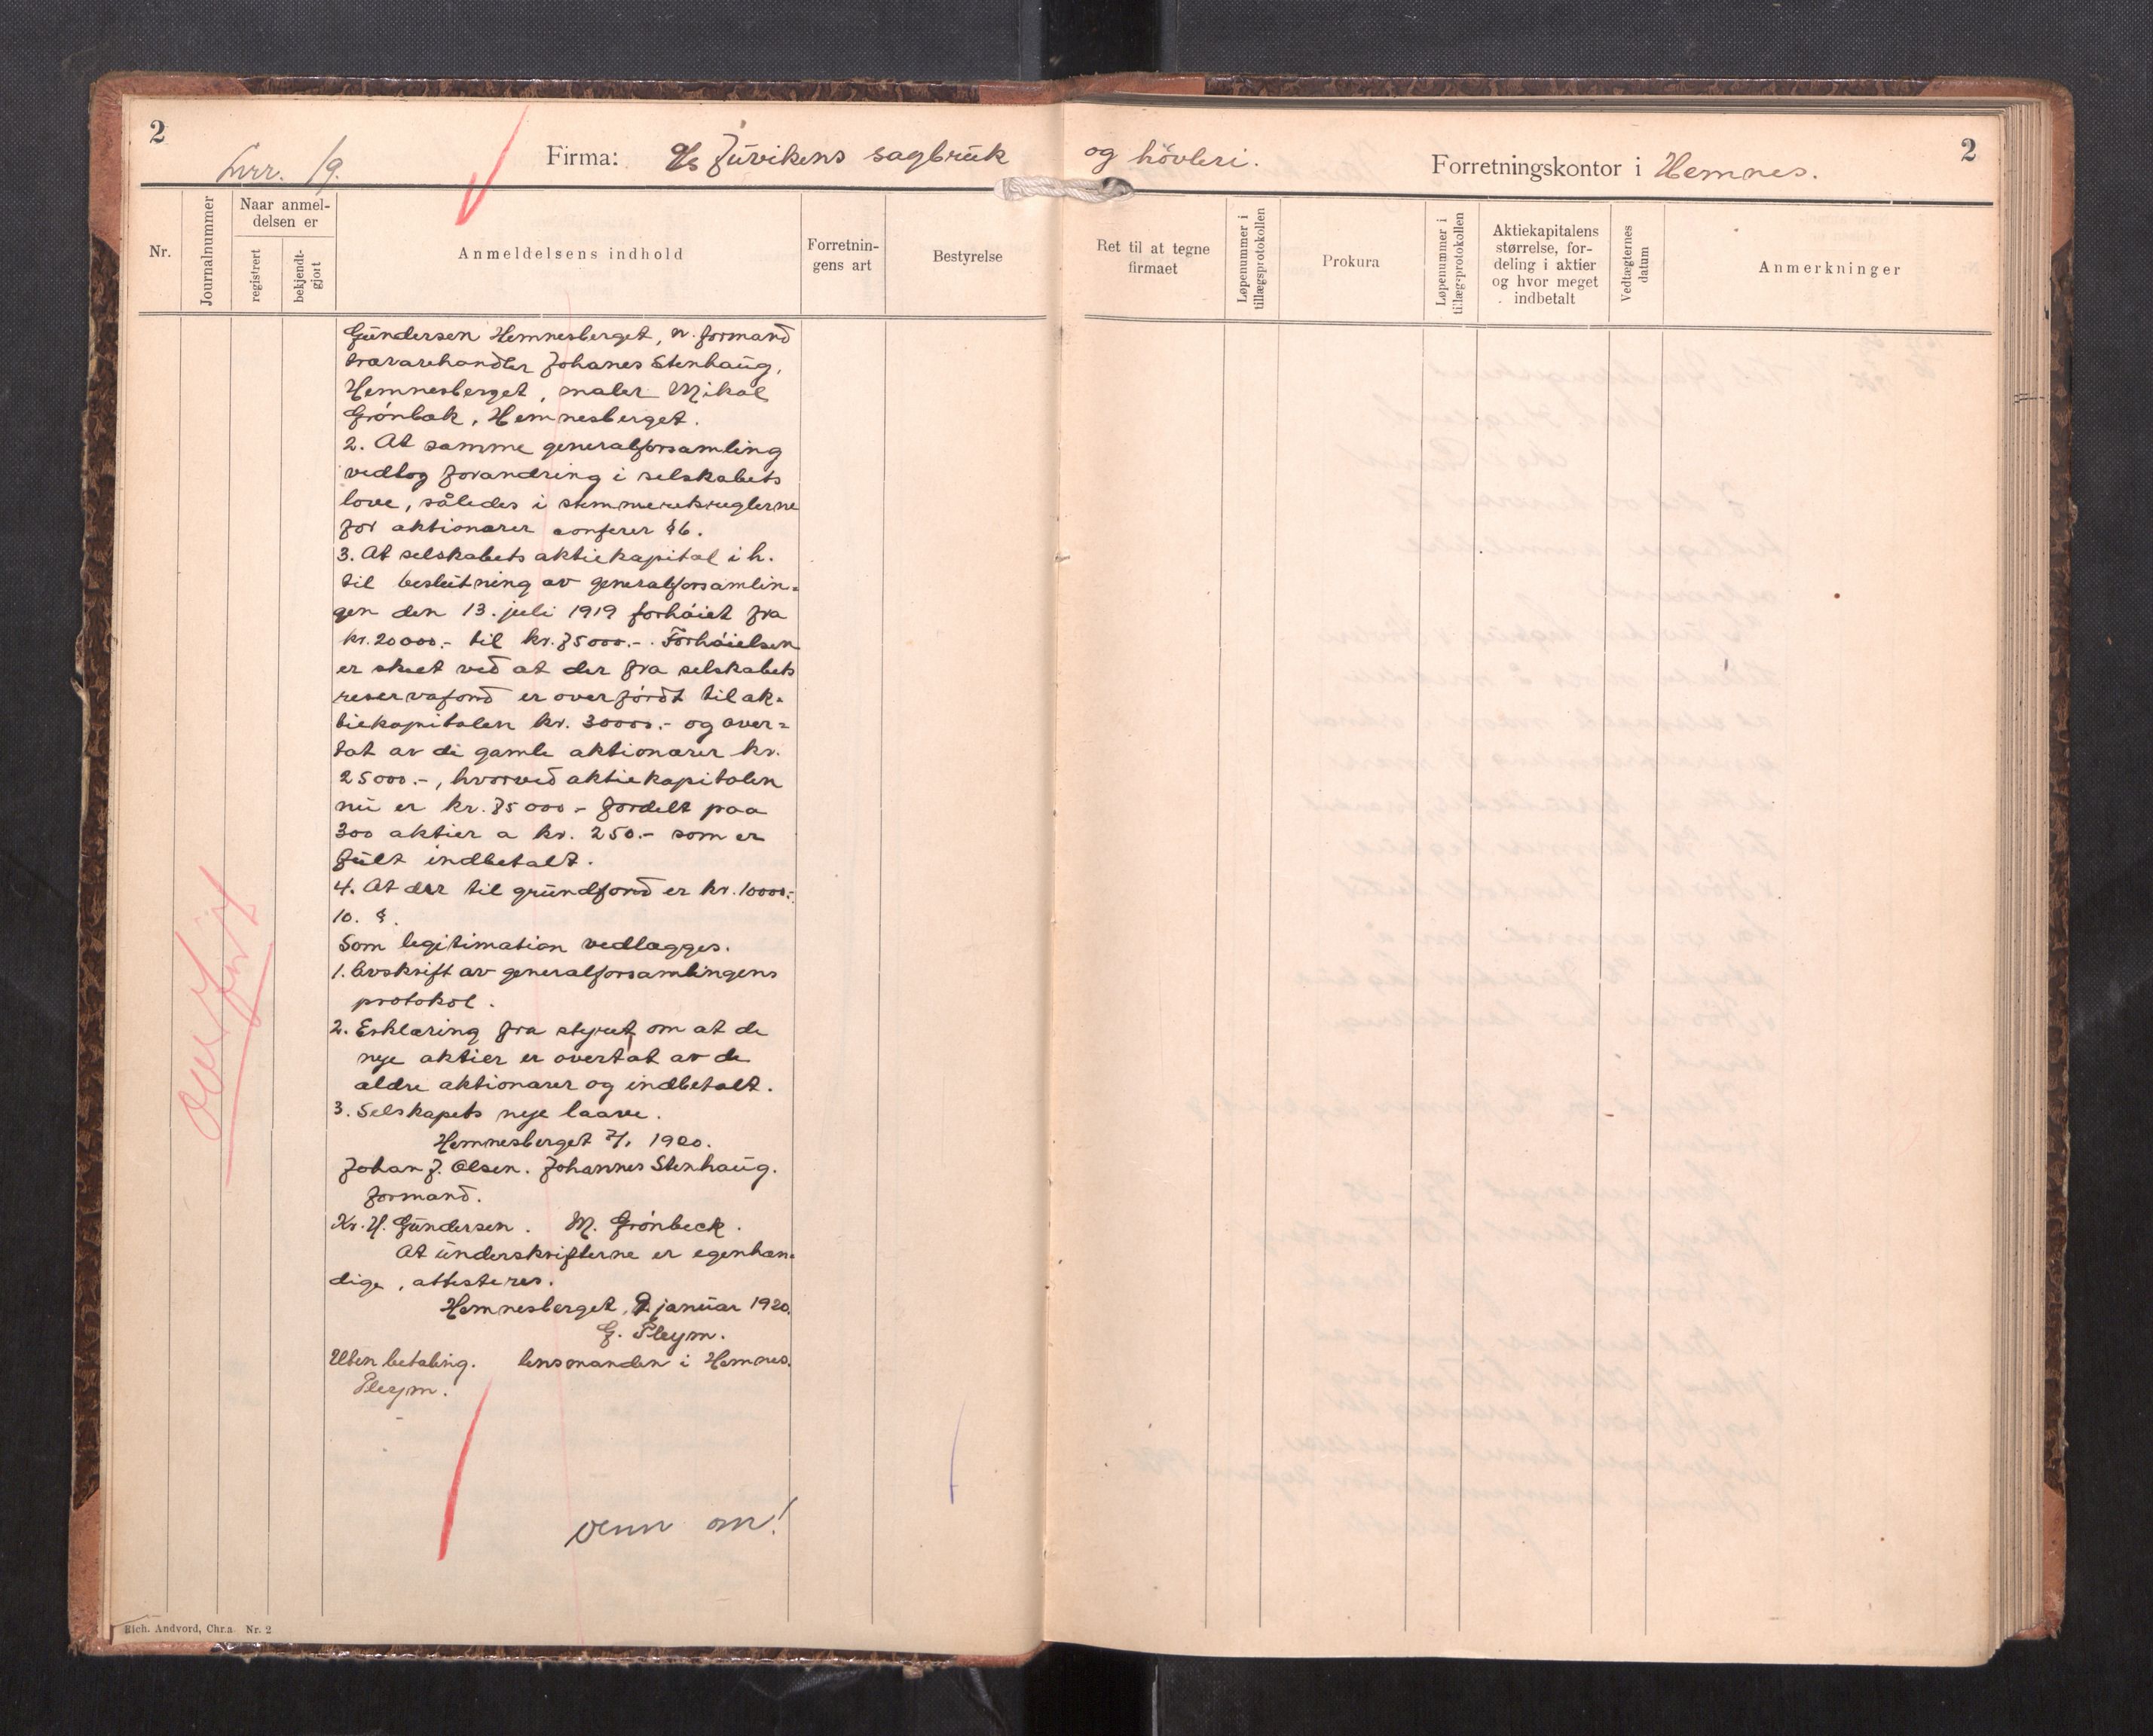 2
Lnr. 19.
Firma: A/s Juvikens sagbruk og høvleri.
Forretningskontor i Hemnes.
2
Nr.
Journalnummer
Naar anmel-
delsen er
registrert
bekjendt-
gjort
Anmeldelsens indhold
Forretnin-
gens art
Bestyrelse
Ret til at tegne
firmaet
Løpenummer i
tillægsprotokollen
Prokura
Løpenummer i
tillægsprotokollen
Aktiekapitalens
størrelse, for-
deling i aktier
og hvor meget
indbetalt
Vedtægternes
datum
Anmerkninger
Gundersen Hemnesberget, v. formand
trævarehandler Johanes Stenhaug,
Hemnesberget, maler Mikal
Grønbæk, Hemnesberget.
2. At samme generalforsamling
vedtog forandring i selskabets
love, således i stemmeretsreglerne
for aktionærer conferer § 6.
3. At selskabets aktiekapital i h.
til beslutning av generalforsamlin-
gen den 13. juli 1919 forhøiet fra
kr. 20000.- til kr. 75000.-. Forhøielsen
er skeet ved at der fra selskabets
reservafond er overført til ak-
tiekapitalen kr. 30000.- og over-
tat av de gamle aktionærer kr.
25000.-, hvorved aktiekapitalen
nu er kr. 75000.- fordelt paa
300 aktier a kr. 250.- som er
fult indbetalt.
4. At der til grundfond er kr. 10000.-
10. §.
Som legitimation vedlægges.
1. Avskrift av generalforsamlingens
protokol.
2. Erklæring fra styret om at de
nye aktier er overtat av de
ældre aktionærer og indbetalt.
3. Selskapets nye laave.
Hemnesberget 7/1 1920.
Johan J. Olsen. Johannes Stenhaug.
formand.
Kr. H. Gundersen. M. Grønbeck.
At underskrifterne er egenhæn-
dige, attesteres.
Hemnesberget, 9 januar 1920.
G. Pleym.
Uten betaling. lensmanden i Hemnes.
Pleym.
overført
venn om!
Rich. Andvord, Chr.a Nr. 2